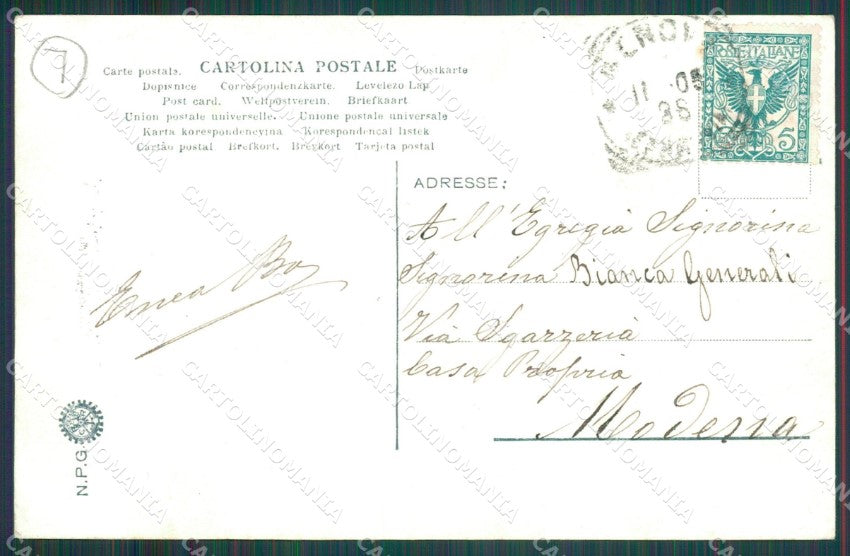 7
Carte postale. CARTOLINA POSTALE Postkarte
Dopisnice Correspondenzkarte. Levelezo Lap
Post card. Weltpostverein. Briefkaart
Union postale universelle. Unione postale universale
Karta korespondencyina Korespondencal listek
Cartão postal Brefkort. Brevkort Tarjeta postal
POSTE ITALIANE
5
11 05
ADRESSE:
All'Egregià Signorina
Signorina Bianca Generali
Via Sgarzerià
Casa Propria
Modena
Enea
N.P.G.
CARTOLINOMANIA